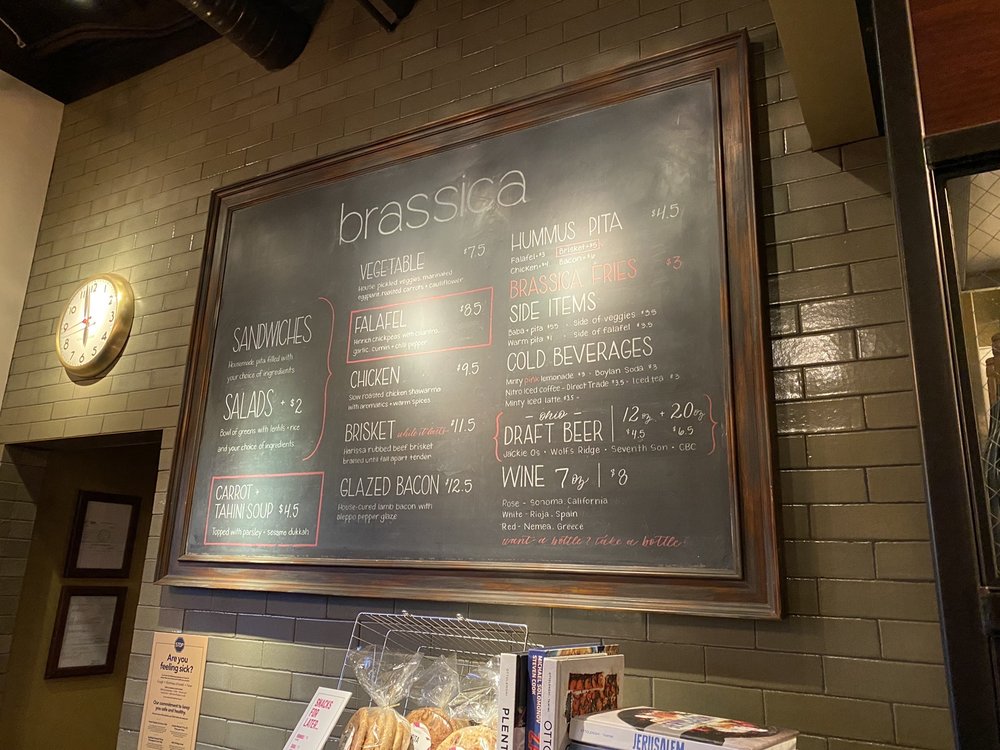 brassica
SANDWICHES
Housemade pita filled with
your choice of ingredients
SALADS + $2
Bowl of greens with lentils + rice
and your choice of ingredients
CARROT +
TAHINI SOUP $4.5
Topped with parsley + sesame dukkah
VEGETABLE $7.5
House pickled veggies marinated
eggplant roasted carrots + cauliflower
FALAFEL $8.5
Heirloom chickpeas with cilantro,
garlic, cumin + chili pepper
CHICKEN $9.5
Slow roasted chicken shawarma
with aromatics + warm spices
BRISKET while it lasts $11.5
Harissa rubbed beef brisket
braised until fall apart tender
GLAZED BACON $12.5
House-cured lamb bacon with
aleppo pepper glaze
HUMMUS PITA $4.5
Falafel +$3 Brisket +$5
Chicken +$4 Bacon +$6
BRASSICA FRIES $3
SIDE ITEMS
Baba + pita $5.5 - Side of veggies $3.5
Warm pita $1 - Side of falafel $3.5
COLD BEVERAGES
Minty pink lemonade $3 - Boylan Soda $3
Nitro iced coffee - Direct Trade $3.5 - Iced tea $3
Minty iced latte $3.5 -
- ohio -
DRAFT BEER | 12oz + 20oz
$4.5 $6.5
Jackie Os - Wolf's Ridge - Seventh Son - CBC
WINE 7oz | $8
Rose - Sonoma, California
White - Rioja, Spain
Red - Nemea, Greece
want a bottle? take a bottle.
STOP
Are you
feeling sick?
Our commitment to keep
you safe and healthy.
SNACKS
FOR
LATER.
PLENTY
MICHAEL SOLOMONOV
STEVEN COOK
OTTO
JERUSALEM